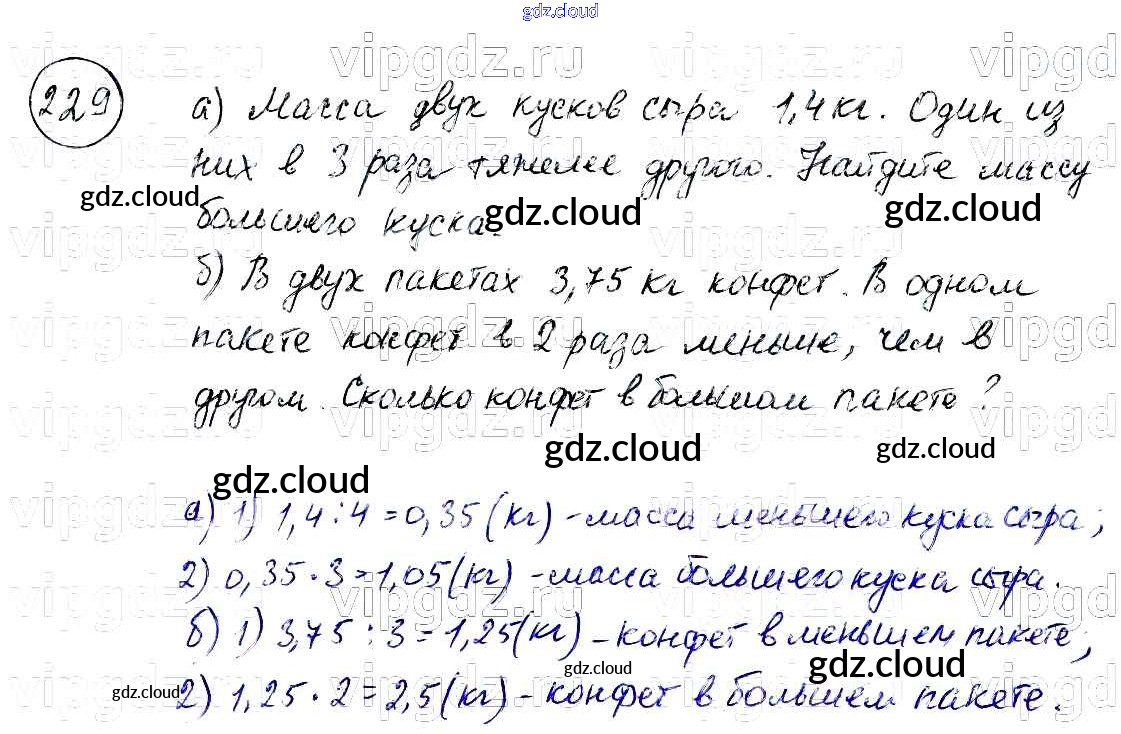 gdz.cloud
vipgdz.ru vipgdz.ru vipgdz.ru vipgd
229 а) Масса двух кусков сыра 1,4 кг. Один из
них в 3 раза тяжелее другого. Найдите массу
gdz.cloud gdz.cloud gdz.cloud
большего куска.
б) В двух пакетах 3,75 кг конфет. В одном
пакете конфет в 2 раза меньше, чем в
другом. Сколько конфет в большом пакете?
gdz.cloud gdz.cloud gdz.cloud
а) 1) 1,4 : 4 = 0,35 (кг) - масса меньшего куска сыра;
2) 0,35 · 3 = 1,05 (кг) - масса большего куска сыра.
б) 1) 3,75 : 3 = 1,25 (кг) - конфет в меньшем пакете;
gdz.cloud gdz.cloud gdz.cloud
2) 1,25 · 2 = 2,5 (кг) - конфет в большем пакете.